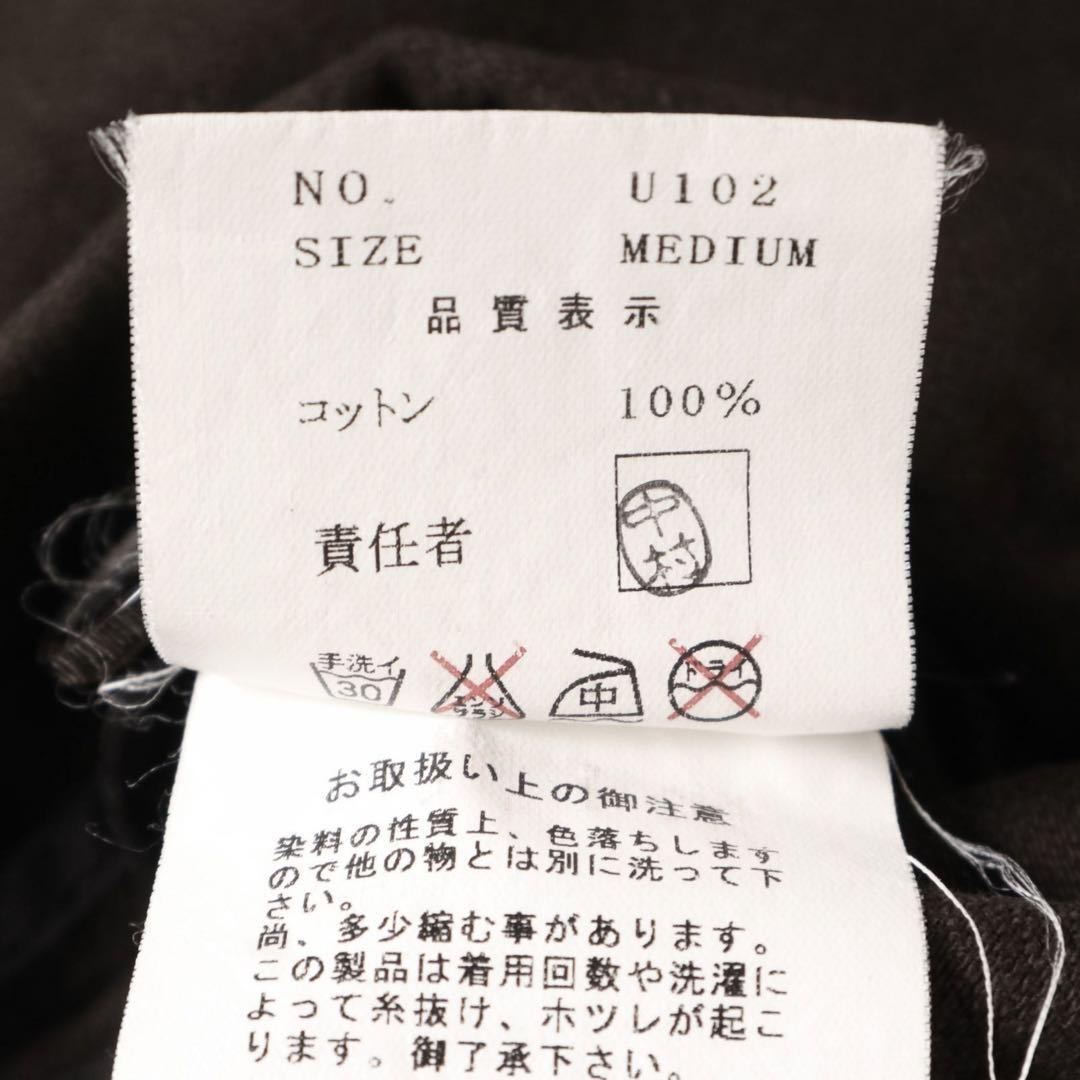 NO. U102
SIZE MEDIUM
品質表示
コットン 100%
責任者 中村
手洗イ 30 エンソ サラシ 中 ドライ
お取扱い上の御注意
染料の性質上、色落ちします
ので他の物とは別に洗って下
さい。
尚、多少縮む事があります。
この製品は着用回数や洗濯に
よって糸抜け、ホツレが起こ
ります。御了承下さい。